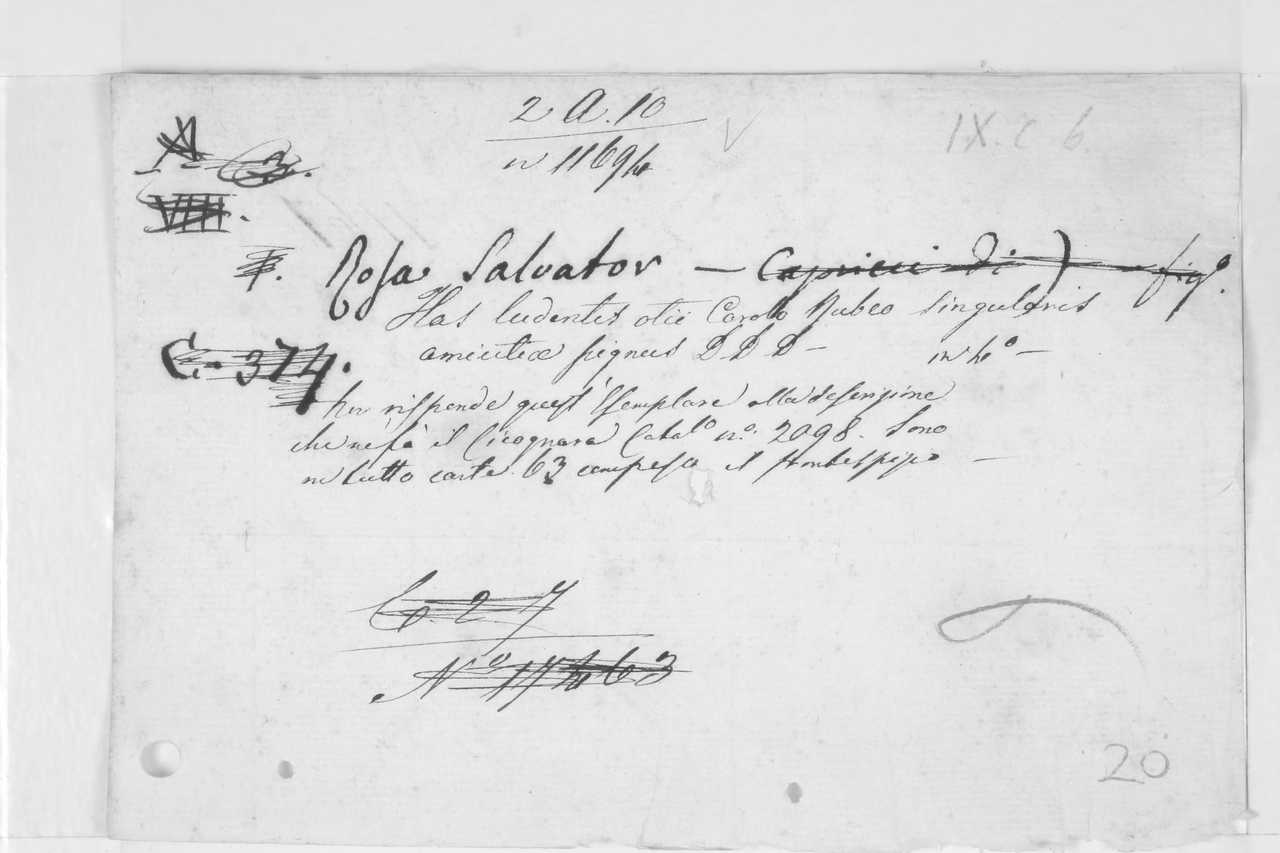 2 A. 10
n 11694
IX. C 6.
A C 3.
VIII.
Rosa Salvator — Capricci di fig.e
Has ludentis otii Carolo Rubeo singularis
C. 374.
amicitiæ pignus D D D — in 4º —
Corrisponde quest'Esemplare alla descrizione
che ne fa il Cicognara Catalº nº. 2098. Sono
in tutto carte 63 compreso il frontespizio —
C. 2 7
Nº 11463
20